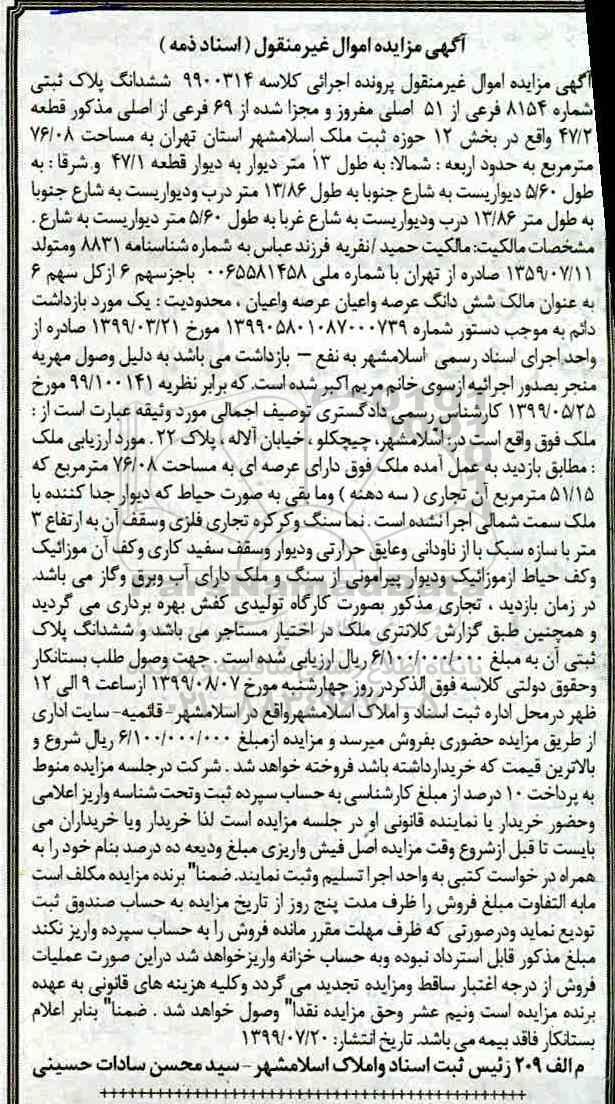 آگهی مزایده اموال غیرمنقول ( اسناد ذمه )
آگهی مزایده اموال غیرمنقول پرونده اجرائی کلاسه ۹۹۰۰۳۱۴ ششدانگ پلاک ثبتی
شماره ۸۱۵۴ فرعی از ۵۱ اصلی مفروز و مجزا شده از ۶۹ فرعی از اصلی مذکور قطعه
۴۷/۲ واقع در بخش ۱۲ حوزه ثبت ملک اسلامشهر استان تهران به مساحت ۷۶/۰۸
مترمربع به حدود اربعه : شمالا: به طول ۱۳ متر دیوار به دیوار قطعه ۴۷/۱ و شرقا : به
طول ۵/۶۰ دیواریست به شارع جنوبا به طول ۱۳/۸۶ متر درب ودیواریست به شارع جنوبا
به طول متر ۱۳/۸۶ درب ودیواریست به شارع غربا به طول ۵/۶۰ متر دیواریست به شارع .
مشخصات مالکیت: مالکیت حمید /نفریه فرزند عباس به شماره شناسنامه ۸۸۳۱ ومتولد
۱۳۵۹/۰۷/۱۱ صادره از تهران با شماره ملی ۰۰۶۵۵۸۱۴۵۸ باجزسهم ۶ ازکل سهم ۶
به عنوان مالک شش دانگ عرصه واعیان عرصه واعیان ، محدودیت : یک مورد بازداشت
دائم به موجب دستور شماره ۱۳۹۹۰۵۸۰۱۰۸۷۰۰۰۷۳۹ مورخ ۱۳۹۹/۰۳/۲۱ صادره از
واحد اجرای اسناد رسمی اسلامشهر به نفع – بازداشت می باشد به دلیل وصول مهریه
منجر بصدور اجرائیه ازسوی خانم مریم اکبر شده است. که برابر نظریه ۹۹/۱۰۰۱۴۱ مورخ
۱۳۹۹/۰۵/۲۵ کارشناس رسمی دادگستری توصیف اجمالی مورد وثیقه عبارت است از :
ملک فوق واقع است در: اسلامشهر، چیچکلو ، خیابان آلاله ، پلاک ۲۲ . مورد ارزیابی ملک
: مطابق بازدید به عمل آمده ملک فوق دارای عرصه ای به مساحت ۷۶/۰۸ مترمربع که
۵۱/۱۵ مترمربع آن تجاری ( سه دهنه ) وما بقی به صورت حیاط که دیوار جدا کننده با
ملک سمت شمالی اجرا نشده است . نما سنگ وکرکره تجاری فلزی وسقف آن به ارتفاع ۳
متر با سازه سبک با از ناودانی وعایق حرارتی ودیوار وسقف سفید کاری وکف آن موزائیک
وکف حیاط ازموزائیک ودیوار پیرامونی از سنگ و ملک دارای آب وبرق وگاز می باشد.
در زمان بازدید ، تجاری مذکور بصورت کارگاه تولیدی کفش بهره برداری می گردید
و همچنین طبق گزارش کلانتری ملک در اختیار مستاجر می باشد و ششدانگ پلاک
ثبتی آن به مبلغ ۶/۱۰۰/۰۰۰/۰۰۰ ریال ارزیابی شده است . جهت وصول طلب بستانکار
وحقوق دولتی کلاسه فوق الذکردر روز چهارشنبه مورخ ۱۳۹۹/۰۸/۰۷ ازساعت ۹ الی ۱۲
ظهر درمحل اداره ثبت اسناد و املاک اسلامشهرواقع در اسلامشهر- قائمیه- سایت اداری
از طریق مزایده حضوری بفروش میرسد و مزایده ازمبلغ ۶/۱۰۰/۰۰۰/۰۰۰ ریال شروع و
بالاترین قیمت که خریدارداشته باشد فروخته خواهد شد . شرکت درجلسه مزایده منوط
به پرداخت ۱۰ درصد از مبلغ کارشناسی به حساب سپرده ثبت وتحت شناسه واریز اعلامی
وحضور خریدار یا نماینده قانونی او در جلسه مزایده است لذا خریدار ویا خریداران می
بایست تا قبل ازشروع وقت مزایده اصل فیش واریزی مبلغ ودیعه ده درصد بنام خود را به
همراه در خواست کتبی به واحد اجرا تسلیم وثبت نمایند. ضمنا" برنده مزایده مکلف است
مابه التفاوت مبلغ فروش را ظرف مدت پنج روز از تاریخ مزایده به حساب صندوق ثبت
تودیع نماید ودرصورتی که ظرف مهلت مقرر مانده فروش را به حساب سپرده واریز نکند
مبلغ مذکور قابل استرداد نبوده وبه حساب خزانه واریزخواهد شد دراین صورت عملیات
فروش از درجه اغتبار ساقط ومزایده تجدید می گردد وکلیه هزینه های قانونی به عهده
برنده مزایده است ونیم عشر وحق مزایده نقدا" وصول خواهد شد . ضمنا" بنابر اعلام
بستانکار فاقد بیمه می باشد. تاریخ انتشار: ۱۳۹۹/۰۷/۲۰
م الف ۲۰۹ رئیس ثبت اسناد واملاک اسلامشهر – سید محسن سادات حسینی